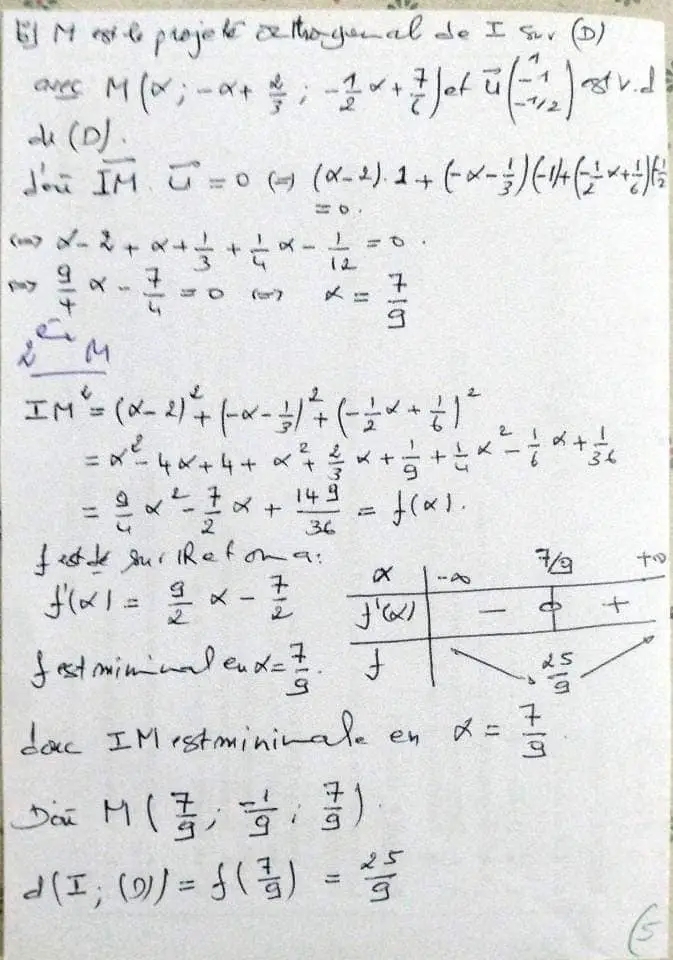 b) M est le projeté orthogonal de I sur (D)
avec M(α ; -α + 2/3 ; -1/2 α + 7/6) et u⃗ (1 -1 -1/2) est v.d
de (D).
d'où IM⃗ . u⃗ = 0 ⇔ (α-2).1 + (-α - 1/3)(-1) + (-1/2 α + 1/6)(-1/2
= 0.
⇔ α - 2 + α + 1/3 + 1/4 α - 1/12 = 0.
⇔ 9/4 α - 7/4 = 0 ⇔ α = 7/9
2 M
IM² = (α-2)² + (-α - 1/3)² + (-1/2 α + 1/6)²
= α² - 4α + 4 + α² + 2/3 α + 1/9 + 1/4 α² - 1/6 α + 1/36
= 9/4 α² - 7/2 α + 149/36 = f(α).
f est sur IR et on a :
f'(α) = 9/2 α - 7/2
α -∞ 7/9 +∞
f'(α) - 0 +
f 25/9
f est minimal en α = 7/9.
donc IM est minimale en α = 7/9.
D'où M(7/9 ; -1/9 ; 7/9).
d(I ; (D)) = f(7/9) = 25/9
5